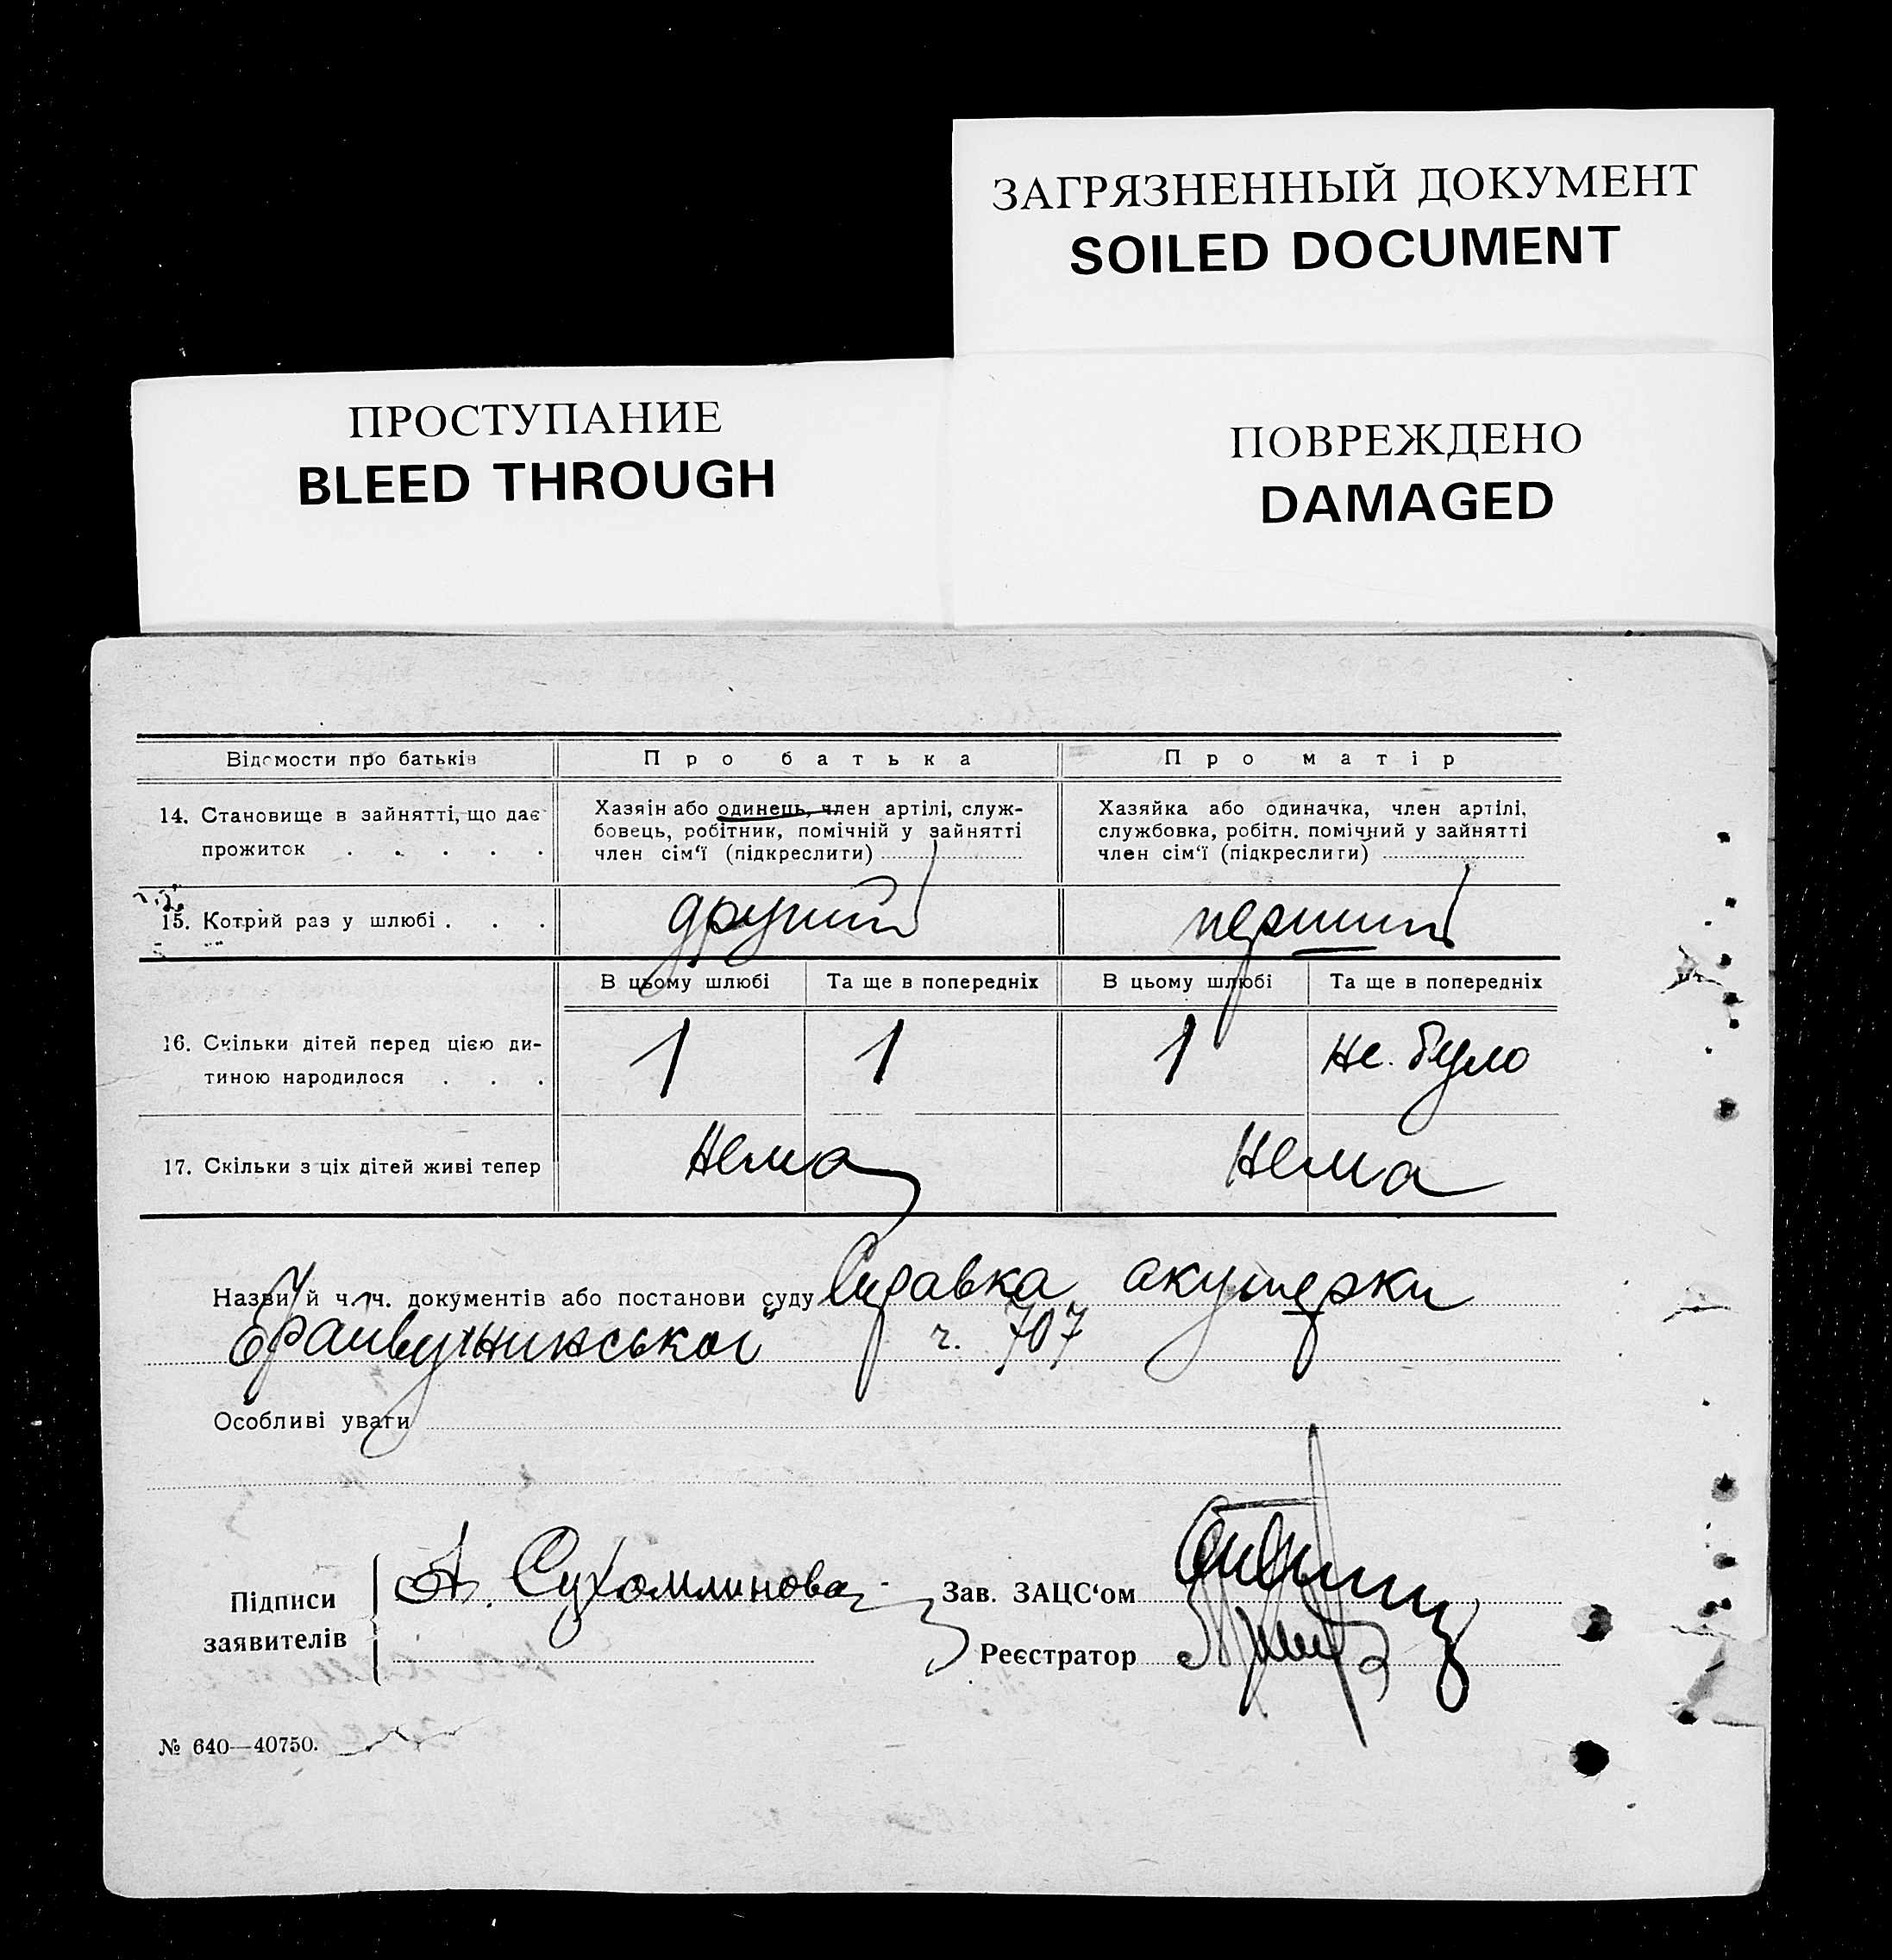 ЗАГРЯЗНЕННЫЙ ДОКУМЕНТ
SOILED DOCUMENT
ПРОСТУПАНИЕ
BLEED THROUGH
ПОВРЕЖДЕНО
DAMAGED
Відомости про батьків
Про батька
Про матір
14. Становище в зайнятті, що дає
прожиток . . . . .
Хазяїн або одинець, член артілі, служ-
бовець, робітник, помічній у зайнятті
член сім'ї (підкреслити)
Хазяйка або одиначка, член артілі,
службовка, робітн. помічний у зайнятті
член сім'ї (підкреслити)
15. Котрий раз у шлюбі . . .
другий
перший
В цьому шлюбі
Та ще в попередніх
В цьому шлюбі
Та ще в попередніх
16. Скільки дітей перед цією ди-
тиною народилося . . .
1
1
1
не було
17. Скільки з ціх дітей живі тепер
Нема
Нема
Назви й ч. ч. документів або постанови суду Справка акушерки
ч. 707
Особливі уваги
Підписи
заявителів
А. Сухомлинова
Зав. ЗАЦС'ом
Реєстратор
№ 640—40750.